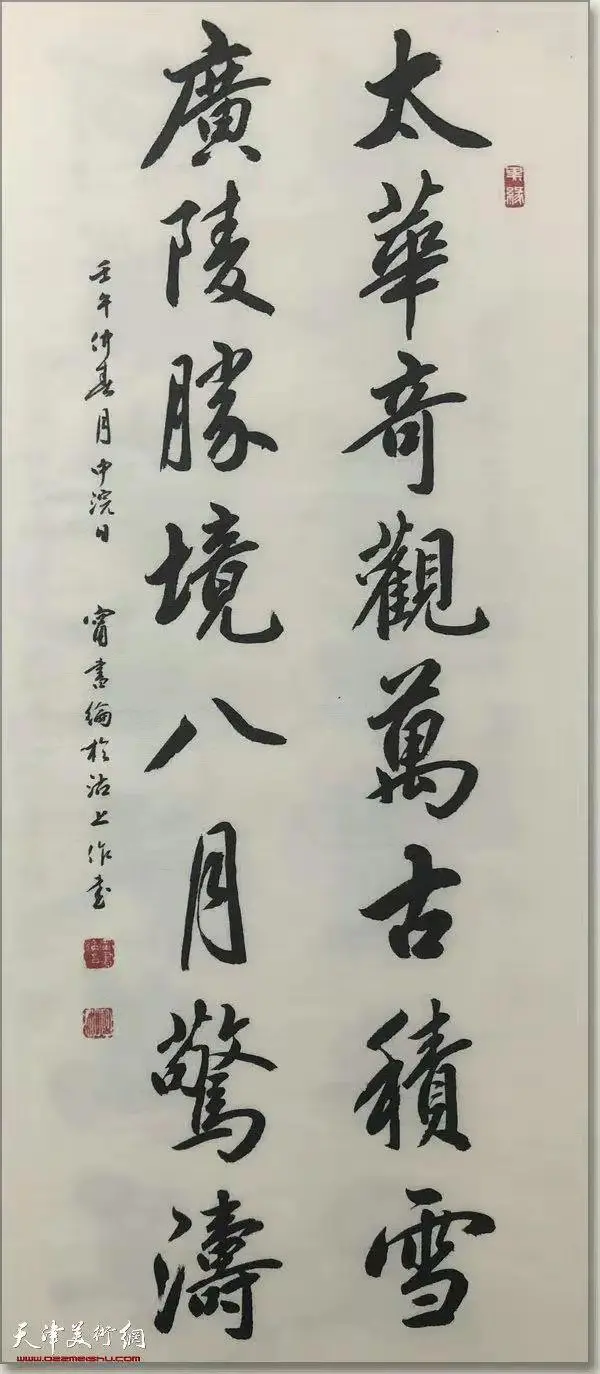 太華奇觀萬古積雪
廣陵勝境八月驚濤
壬午仲春月中浣日
甯書綸於沽上作書
天津美術網
www.022meishu.com